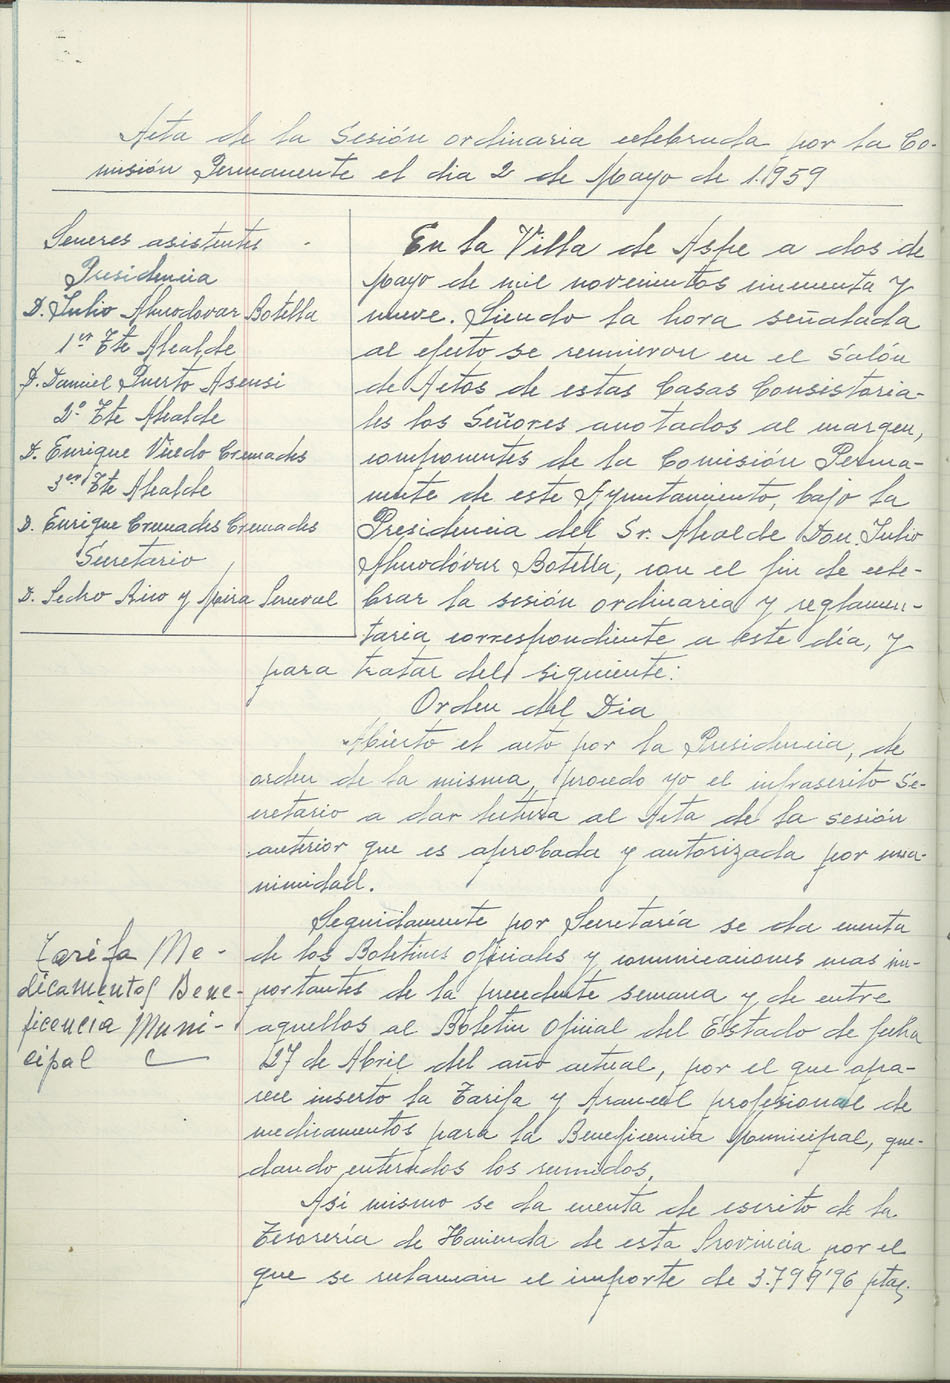 Acta de la Sesión ordinaria celebrada por la Co-
misión Permanente el dia 2 de Mayo de 1.1959
Señores asistentes
Presidencia
D. Julio Almodovar Botella
1er Tte Alcalde
D. Daniel Puerto Asensi
2º Tte Alcalde
D. Enrique Vicedo Cremades
3er Tte Alcalde
D. Enrique Cremades Cremades
Secretario
D. Pedro Rico y Mira Perceval
En la Villa de Aspe a dos de
Mayo de mil novecientos cincuenta y
nueve. Siendo la hora señalada
al efecto se reunieron en el Salón
de Actos de estas Casas Consistoria-
les los Señores anotados al margen,
componentes de la Comisión Perma-
nente de este Ayuntamiento, bajo la
Presidencia del Sr. Alcalde Don. Julio
Almodóvar Botella, con el fin de cele-
brar la sesión ordinaria y reglamen-
taria correspondiente a este día, y
para tratar del siguiente:
Orden del Dia
Abierto el acto por la Presidencia, de
orden de la misma, procedo yo el infrascrito Se-
cretario a dar lectura al Acta de la sesión
anterior que es aprobada y autorizada por una-
nimidad.
Seguidamente por Secretaría se da cuenta
de los Boletines oficiales y comunicaciones mas im-
portantes de la precedente semana y de entre
aquellos al Boletin Oficial del Estado de fecha
27 de Abril del año actual, por el que apa-
rece inserto la Tarifa y Arancel profesional de
medicamentos para la Beneficencia Municipal, que-
dando enterados los reunidos.
Tarifa Me-
dicamentos Bene-
ficencia Muni-
cipal
Asi mismo se da cuenta de escrito de la
Tesorería de Hacienda de esta Provincia por el
que se reclaman el importe de 3.799'96 ptas.